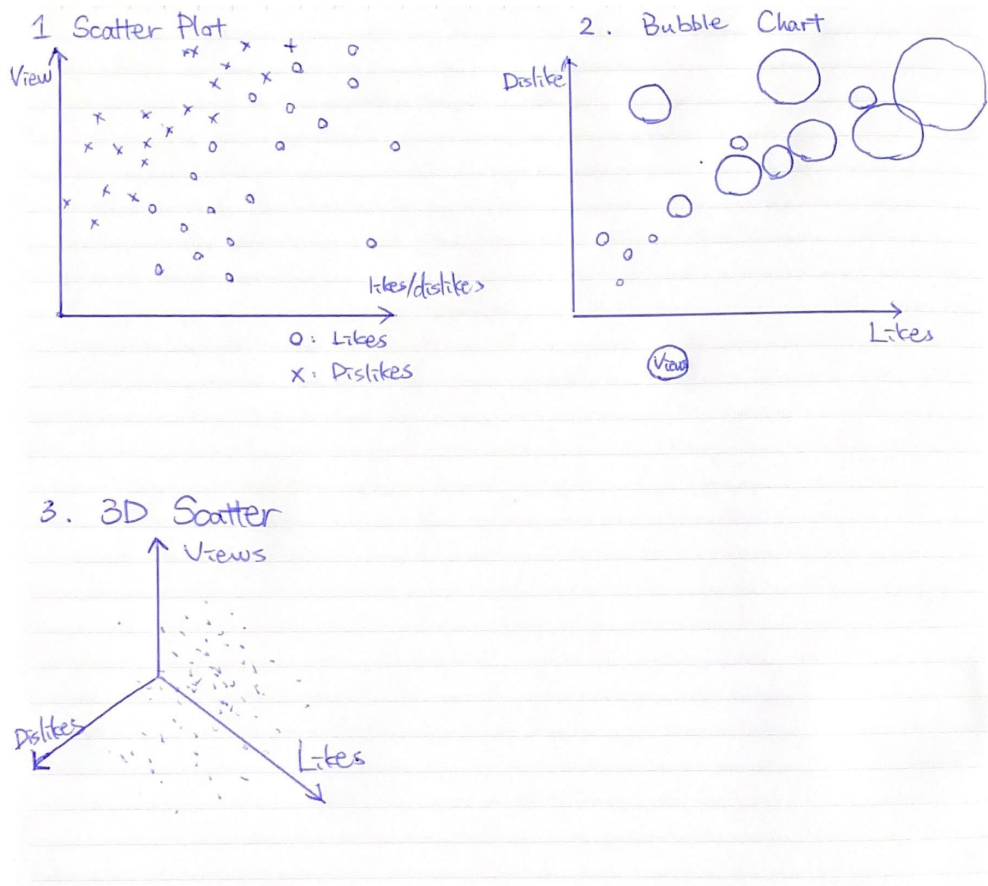 1 Scatter Plot
View
likes/dislikes
O: Likes
X: Dislikes
2. Bubble Chart
Dislike
Likes
View
3. 3D Scatter
Views
Dislikes
Likes